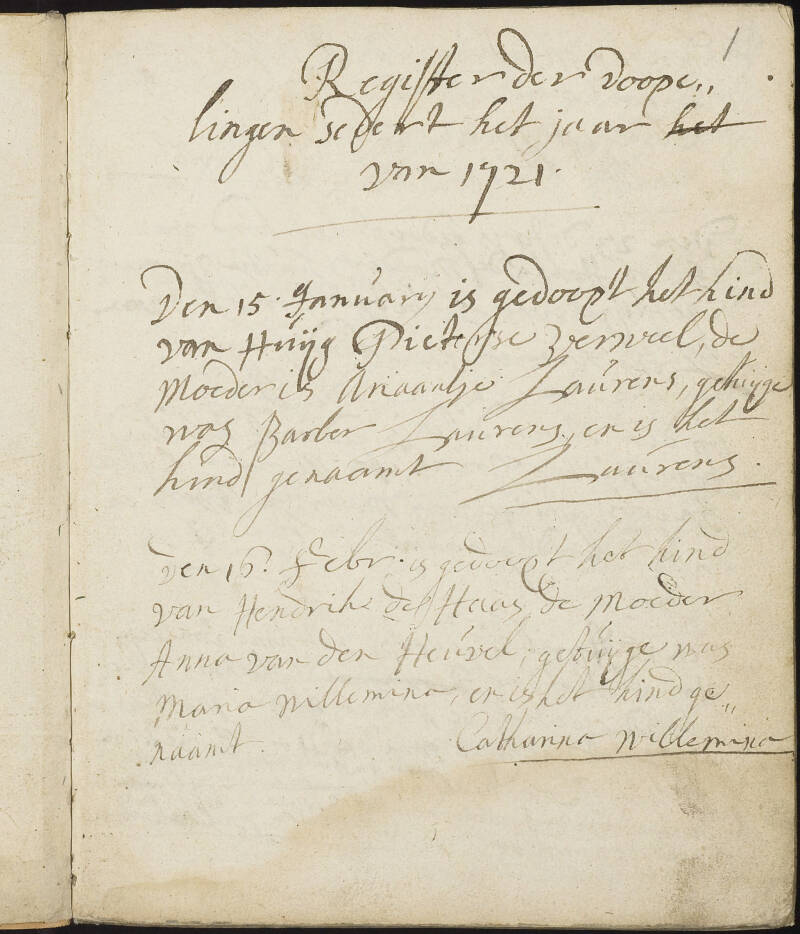 1
Register der doope,,
lingen sedert het jaar het
van 1721.
Den 15. January is gedoopt het kind
van Huijg Pieterse Verweel, de
Moeder is Ariaantje Laurens, getuijge
was Barber Laurens, en is het
kind genaamt Laurens.
den 16. Febr. is gedoopt het kind
van Hendrik de Haas de Moeder
Anna van den Heuvel, getuijge was
Maria Willemina, en is het kind ge,,
naamt. Catharina Willemina